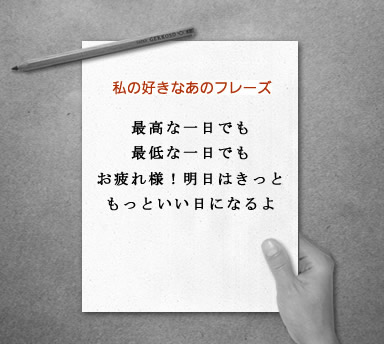 私の好きなあのフレーズ
最高な一日でも
最低な一日でも
お疲れ様!明日はきっと
もっといい日になるよ